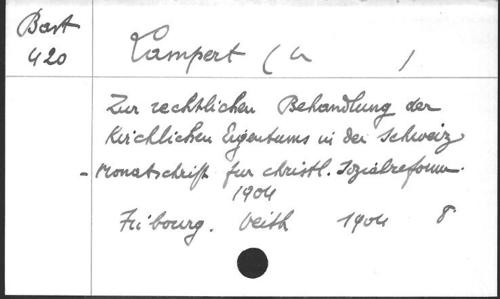 Bast
420
Lampert (U )
Zur rechtlichen Behandlung der
Kirchlichen Eigentums in der Schweiz
- Monatschrift fur christl. Sozialreform.
1904
Fribourg. Veith 1904 8